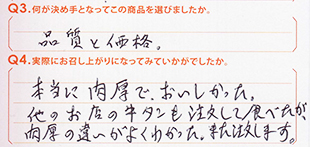 Q3.何が決め手となってこの商品を選びましたか。
品質と価格。
Q4.実際にお召し上がりになってみていかがでしたか。
本当に肉厚で、おいしかった。
他のお店の牛タンも注文して食べたが、
肉厚の違いがよくわかった。また注文します。